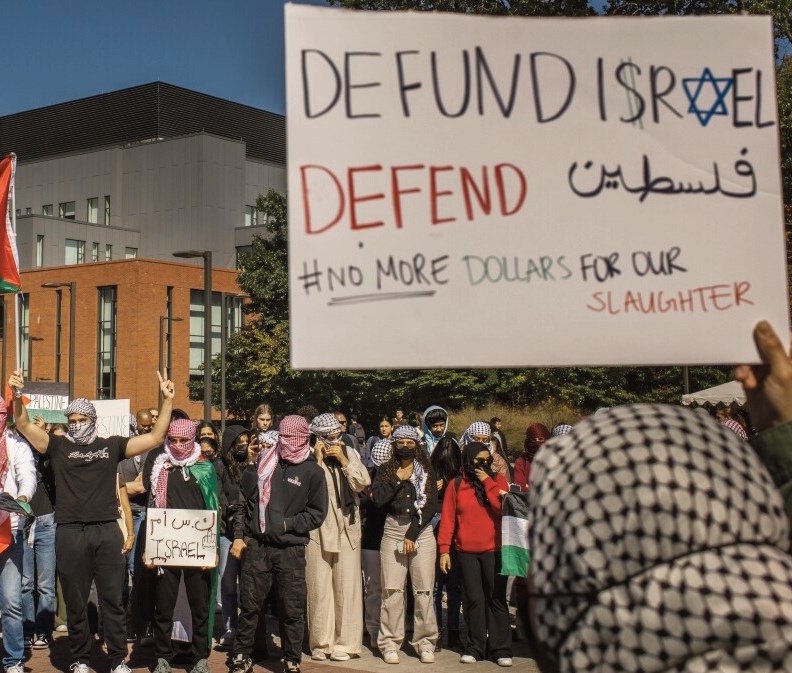 DEFUND I$R✡EL
DEFEND فلسطين
#NO MORE DOLLARS FOR OUR
SLAUGHTER
ISRAEL